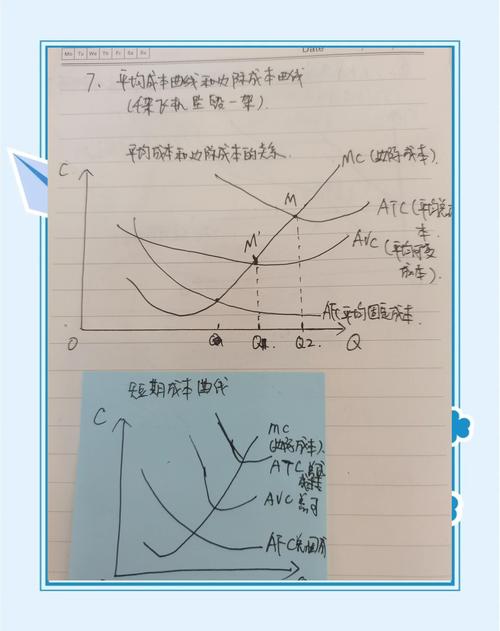 Mo Tu We Th Fr Sa Su
Date
7、平均成本曲线和边际成本曲线
(4架飞机坠毁一架).
平均成本和边际成本的关系.
C
MC(边际成本).
M
ATC(平均总
本.
M'
AVC
(平均可变
成本).
AFC平均固定成本.
O
Q1
Q2.
Q
短期成本曲线
C
MC
(边际成本).
ATC
AVC
AFC